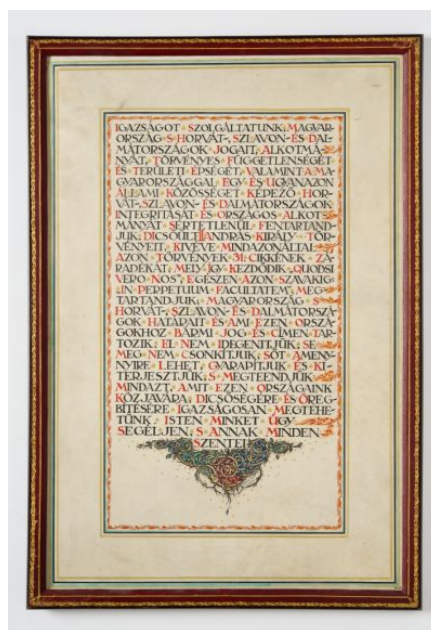 IGAZSÁGOT · SZOLGÁLTATUNK; MAGYAR-
ORSZÁG · S · HORVÁT-, SZLAVON- ÉS · DAL-
MÁTORSZÁGOK · JOGAIT, ALKOTMÁ-
NYÁT, TÖRVÉNYES · FÜGGETLENSÉGÉT
ÉS · TERÜLETI · ÉPSÉGÉT, VALAMINT · A MA-
GYARORSZÁGGAL · EGY · ÉS · UGYANAZON
ÁLLAMI · KÖZÖSSÉGET · KÉPEZŐ · HOR-
VÁT-, SZLAVON- ÉS · DALMÁTORSZÁGOK
INTEGRITÁSÁT · ÉS · ORSZÁGOS · ALKOT-
MÁNYÁT · SÉRTETLENÜL · FENTARTAND-
JUK; DICSŐÜLT II ANDRÁS · KIRÁLY · TÖR-
VÉNYEIT, KIVÉVE · MINDAZONÁLTAL
AZON · TÖRVÉNYEK · 31. CIKKÉNEK · ZÁ-
RADÉKÁT, MELY · ÍGY · KEZDŐDIK „QUODSI
VERO · NOS”, EGÉSZEN · AZON · SZAVAKIG
„IN · PERPETUUM · FACULTATEM”, MEG-
TARTANDJUK; MAGYARORSZÁG · S
HORVÁT-, SZLAVON- ÉS · DALMÁTORSZÁ-
GOK · HATÁRAIT · ÉS · AMI · EZEN · ORSZÁ-
GOKHOZ · BÁRMI · JOG · ÉS · CÍMEN · TAR-
TOZIK, EL · NEM · IDEGENÍTJÜK, SE
MEG · NEM · CSONKÍTJUK, SŐT · AMENY-
NYIRE · LEHET, GYARAPÍTJUK · ÉS · KI-
TERJESZTJÜK; S · MEGTEENDJÜK
MINDAZT, AMIT · EZEN · ORSZÁGAINK
KÖZJAVÁRA, DICSŐSÉGÉRE · ÉS · ÖREG-
BÍTÉSÉRE · IGAZSÁGOSAN · MEGTEHE-
TÜNK. ISTEN · MINKET · ÚGY
SEGÉLJEN, S · ANNAK · MINDEN
SZENTEI.